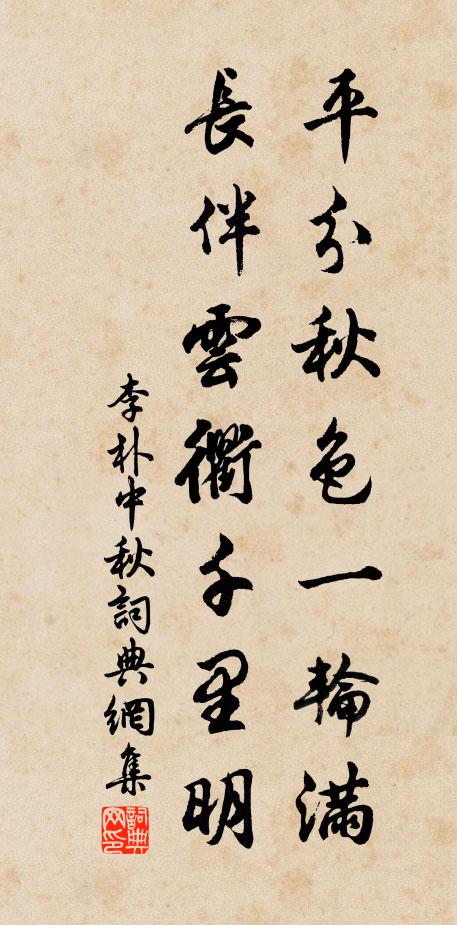 平分秋色一輪滿
長伴雲衢千里明
李朴中秋詞典網集
詞典网印